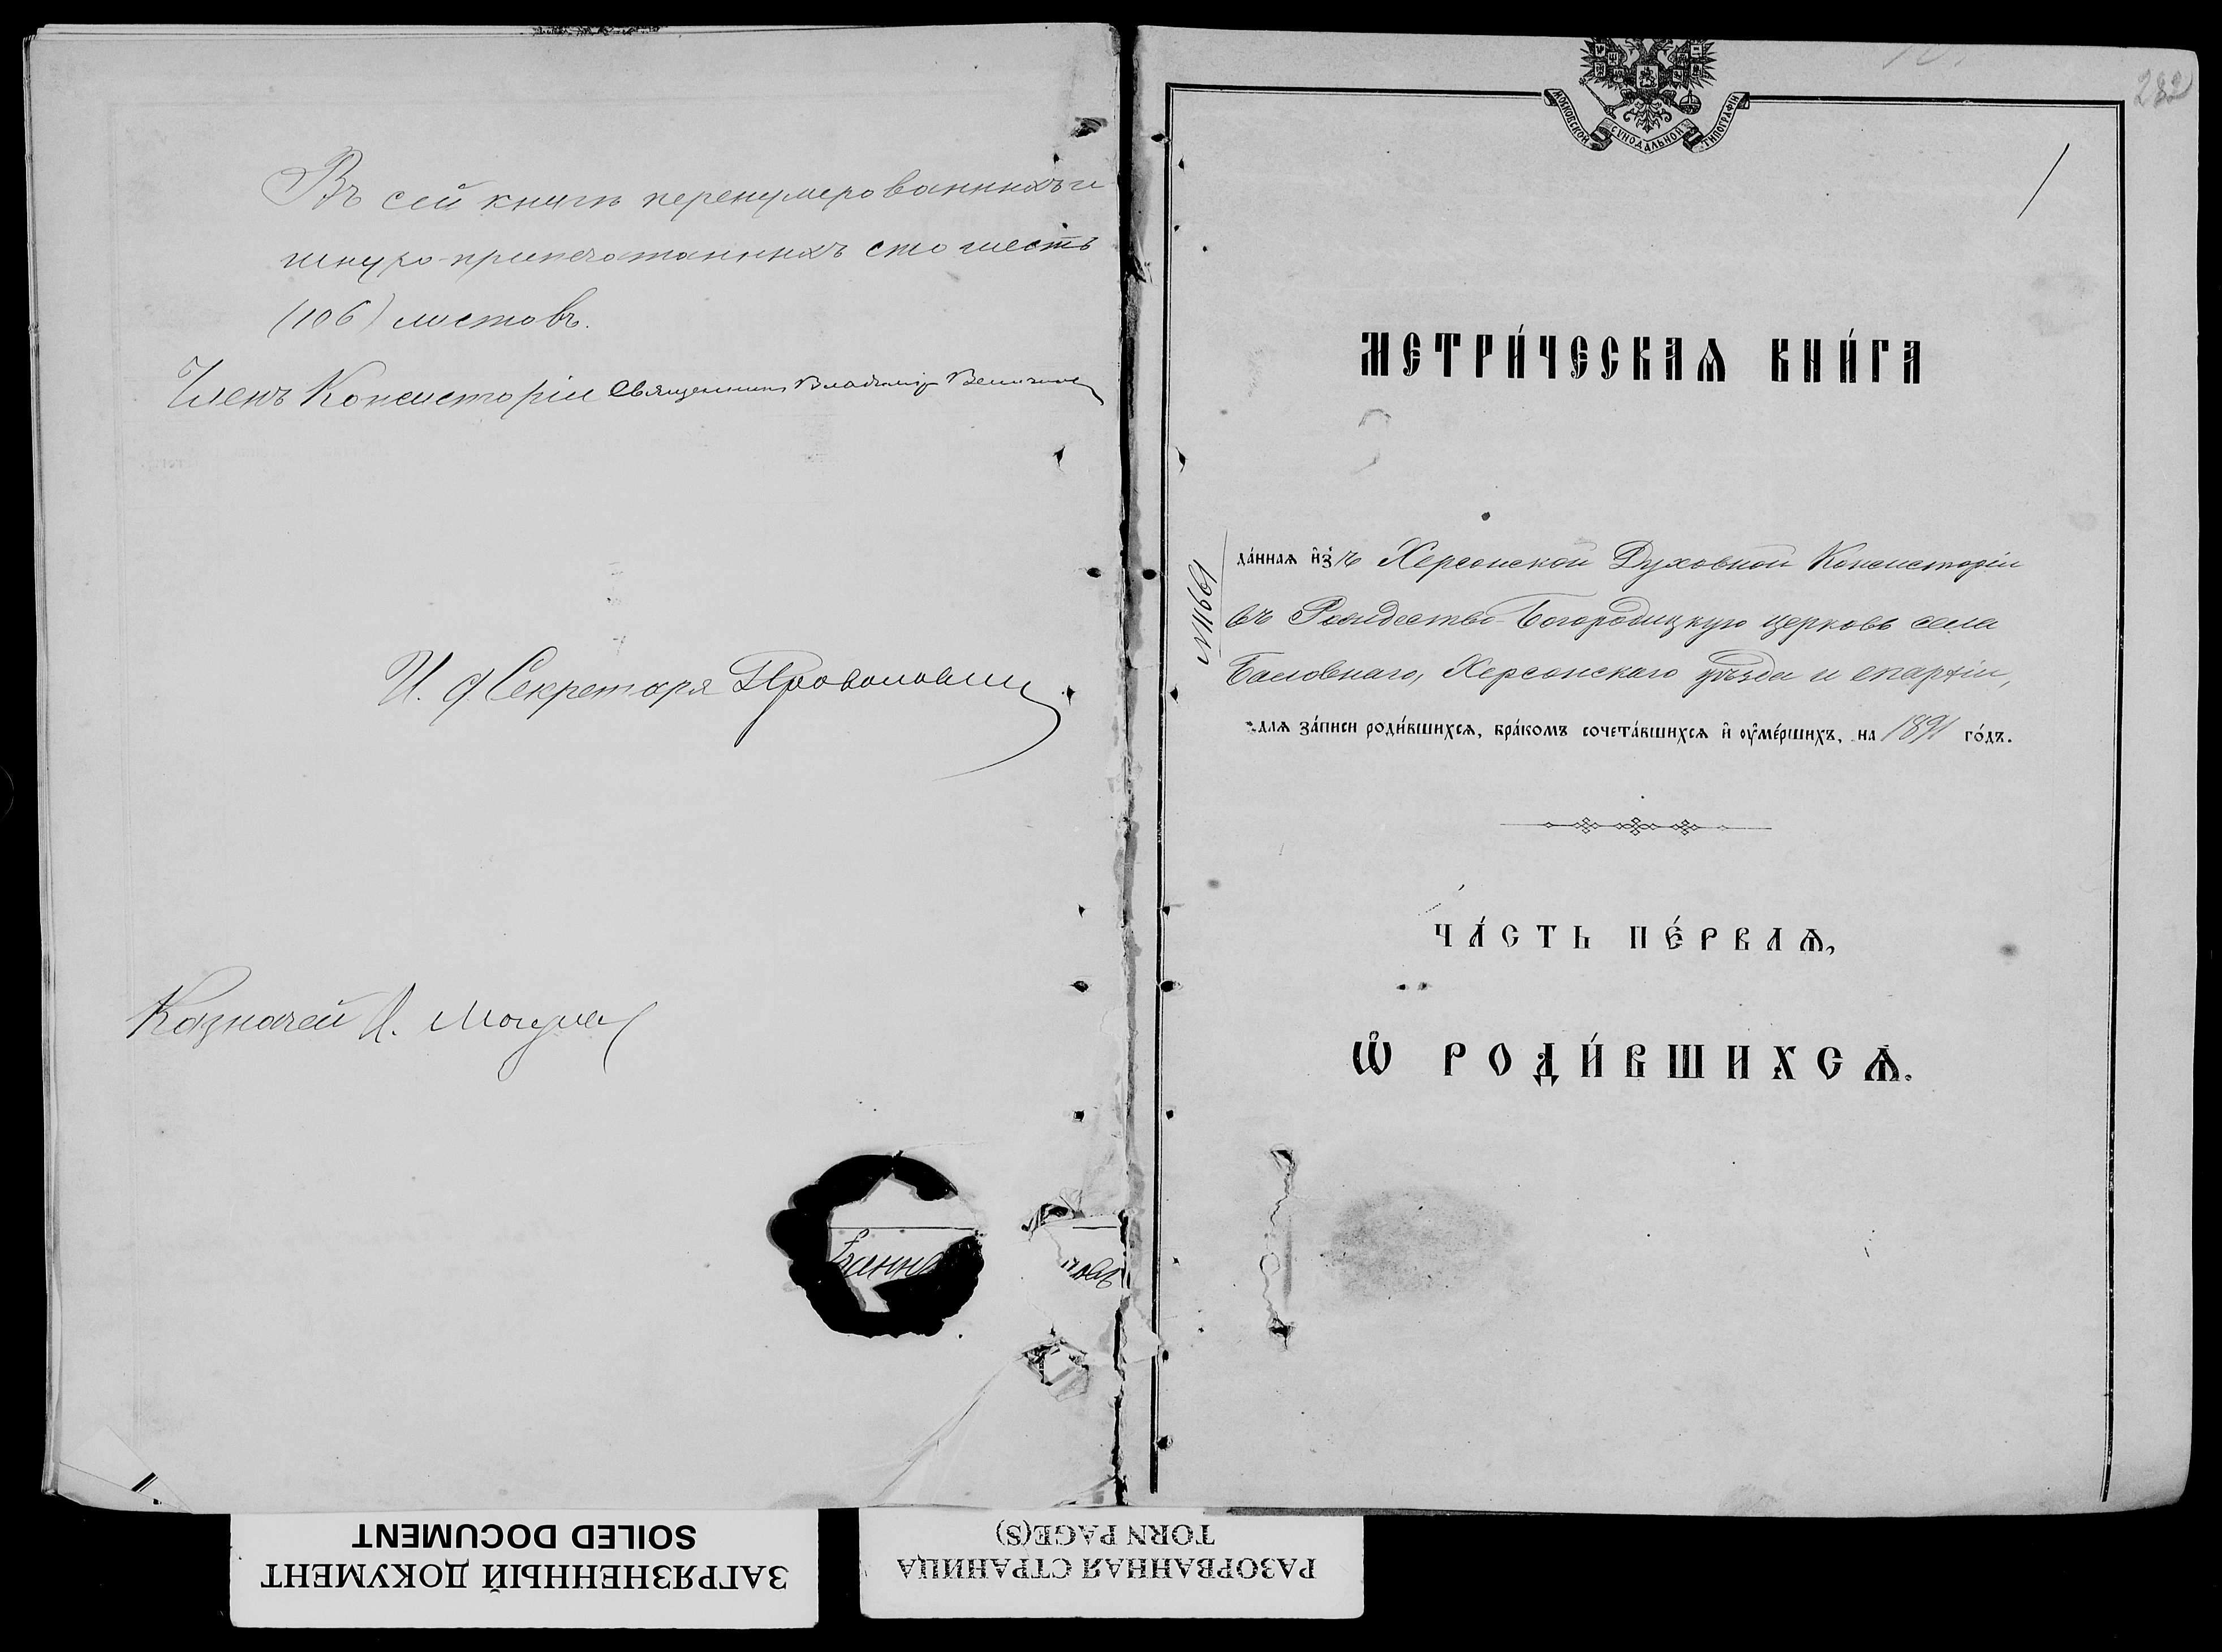 Въ сей книгѣ перенумерованныхъ и
шнуро-припечатанныхъ сто шесть
(106) листовъ.
Членъ Консисторіи Священникъ Владиміръ
И. д. Секретаря
Казначей
282
МОСКОВСКОЙ СУНОДАЛЬНОЙ ТИПОГРАФІИ
МЕТРИ́ЧЕСКАѦ КНИ́ГА
да́ннаѧ и҆зъ Херсонской Духовной Консисторіи
въ Рождество-Богородицкую церковь села
Баловнаго, Херсонскаго уѣзда и епархіи,
длѧ за́писи роди́вшихсѧ, бра́комъ сочета́вшихсѧ и҆ ᲂу҆ме́ршихъ, на 1891 го́дъ.
ЧА́СТЬ ПЕ́РВАѦ,
Ѡ҆ РОДИ́ВШИХСѦ.
ЗАГРЯЗНЕННЫЙ ДОКУМЕНТ
SOILED DOCUMENT
РАЗОРВАННАЯ СТРАНИЦА
TORN PAGE(S)